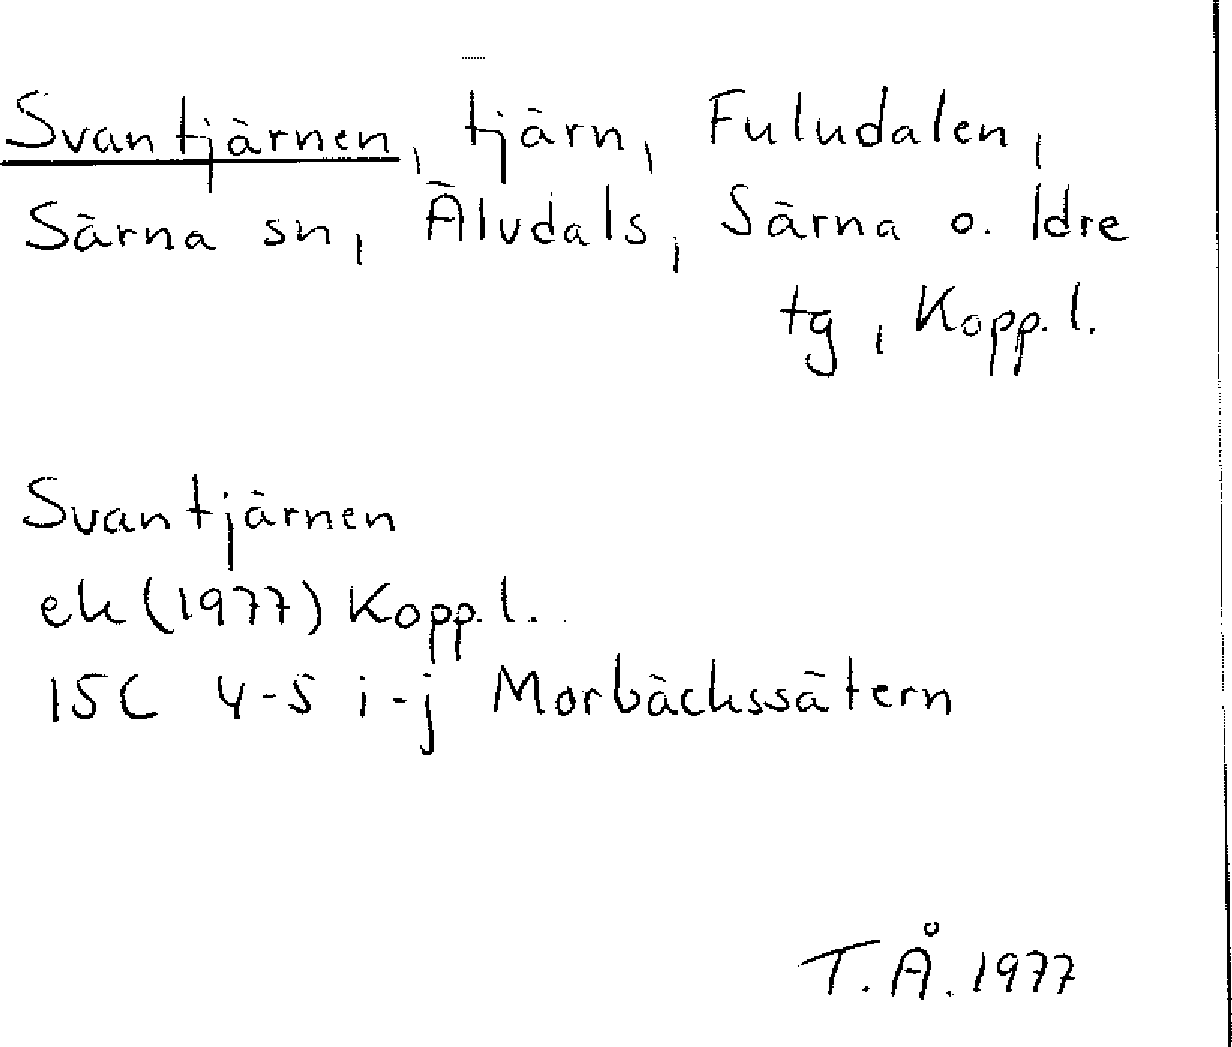 Svantjärnen, tjärn, Fuludalen,
Särna sn, Älvdals, Särna o. Idre
tg, Kopp. l.
Svantjärnen
ek (1977) Kopp. l.
15C 4-5 i-j Morbäckssätern
T. Å. 1977